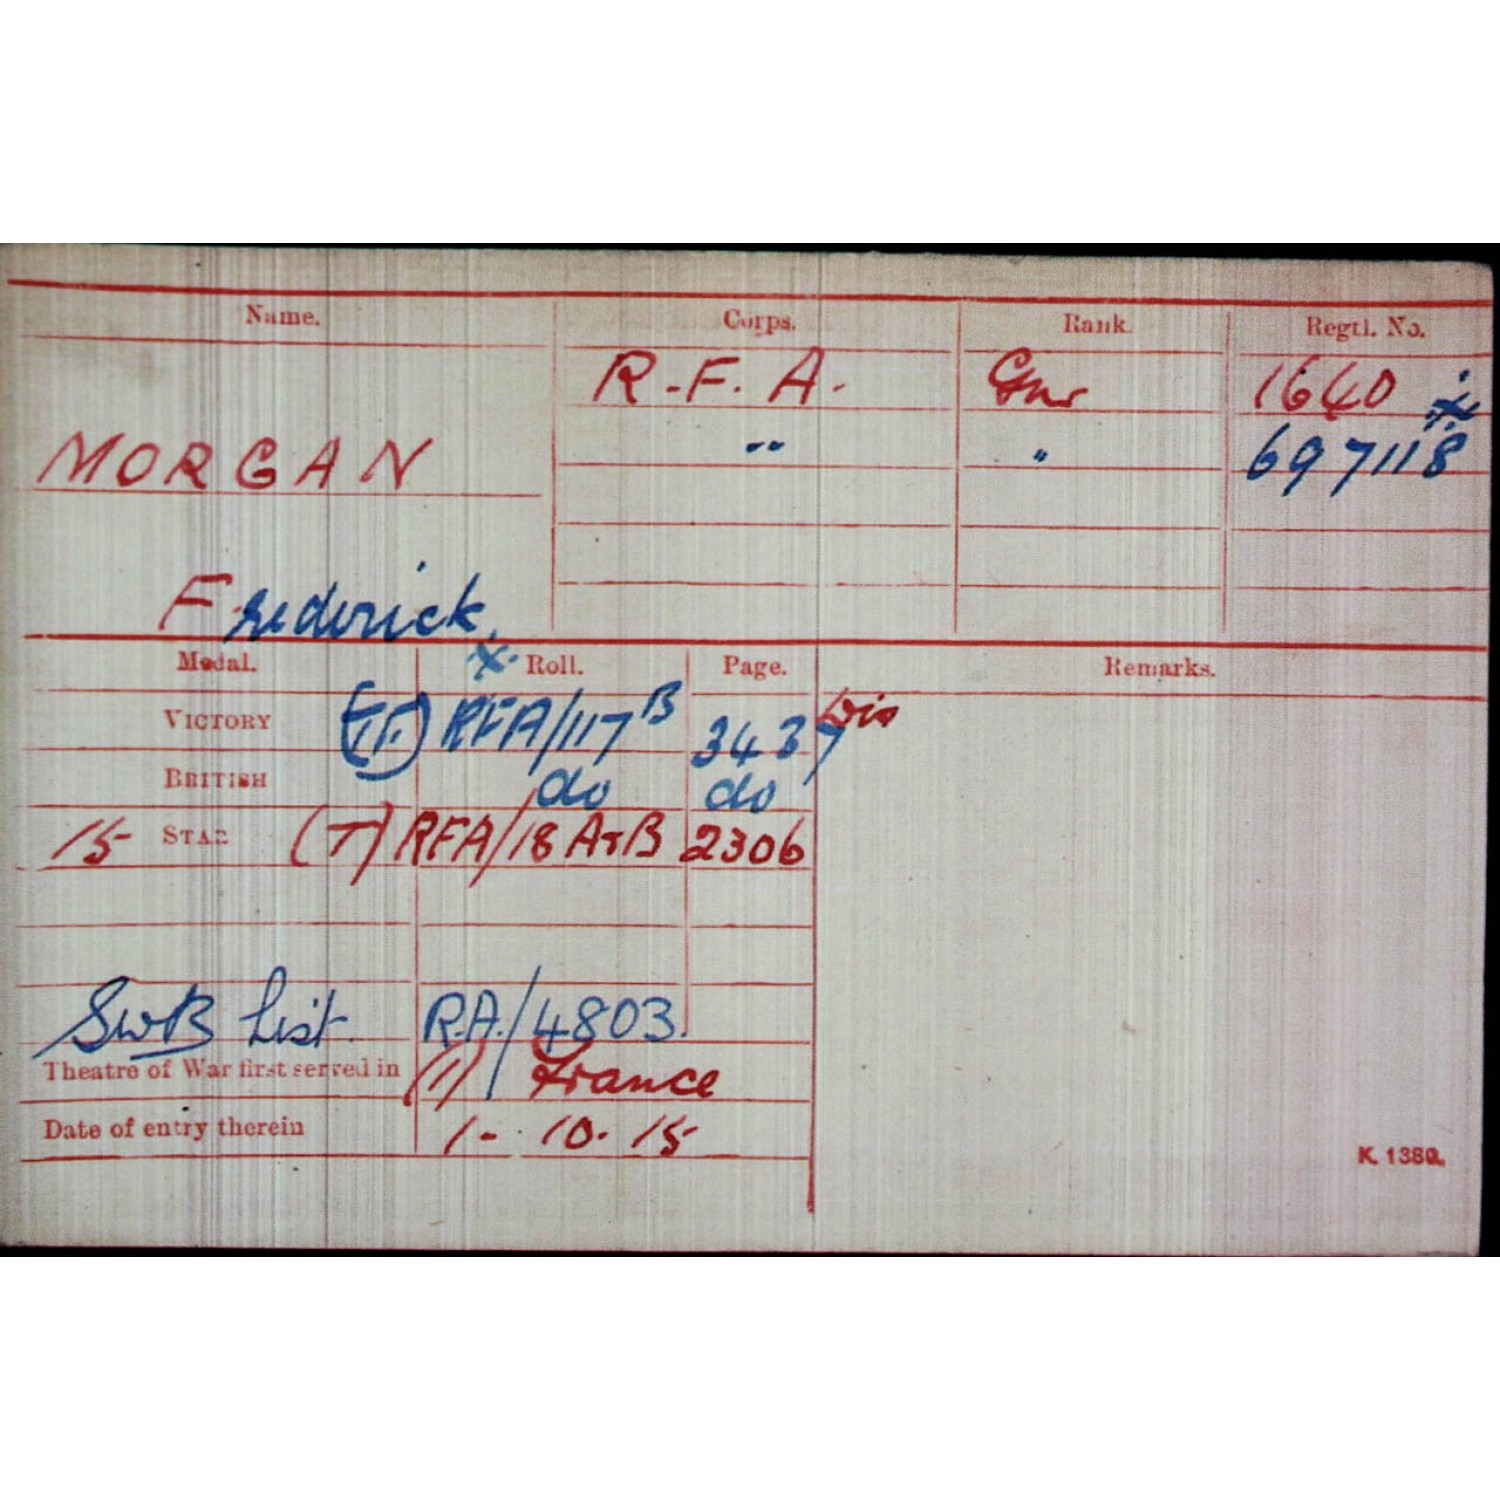 Name. Corps. Rank. Regtl. No.
R.F.A. Gnr 1640
MORGAN " " 697118
Frederick.
Medal. x Roll. Page. Remarks.
VICTORY (TF) RFA/117B 3437 Dis
BRITISH do do
15 STAR (T) RFA/18A+B 2306
SWB List. R.A./4803.
Theatre of War first served in (1) France
Date of entry therein 1-10-15
K. 1380.